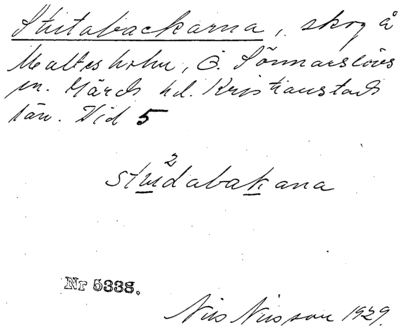 Stutabackarna, skog å
Maltesholm, Ö. Sönnarslövs
sn. Gärds hd. Kristianstads
län. Vid 5
2
studabakana
Nr 5338.
Nils Nilsson 1929.